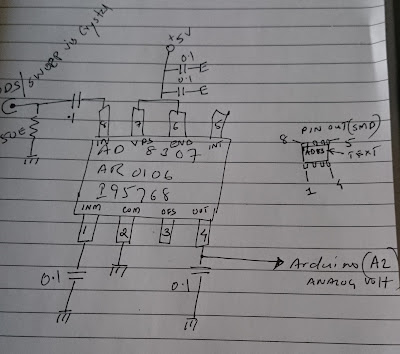 DDS/SWEEP via Crystal
+5V
0.1
0.1
.1
50E
8
7
6
5
IN
VPS
ENB
INT
AD 8307
AR0106
195768
INM
COM
OFS
OUT
1
2
3
4
0.1
0.1
Arduino(A2)
ANALOG VOLT
PIN OUT(SMD)
8
5
AD83
TEXT
1
4